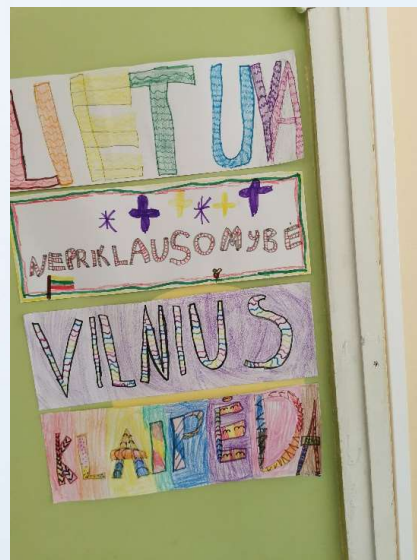 LIETUVA
NEPRIKLAUSOMYBĖ
VILNIUS
KLAIPĖDA